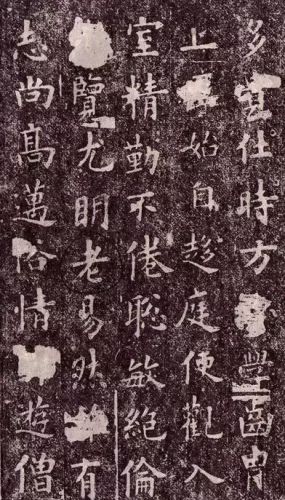 多宦仕時方學齒胄
上始自趍庭便觀入
室精勤不倦聡敏絕倫
覽尤明老易然有
志尚髙邁俗情遊僧